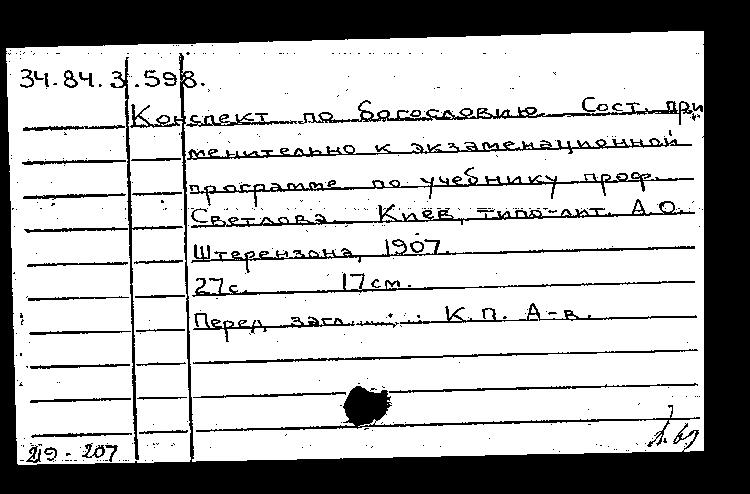 34.84.3.598.
Конспект по богословию. Сост. при
менительно к экзаменационной
программе по учебнику проф.
Светлова. Киев, типо-лит. А.О.
Штерензона, 1907.
27с. 17см.
Перед загл.: К.П. А-в.
219-207